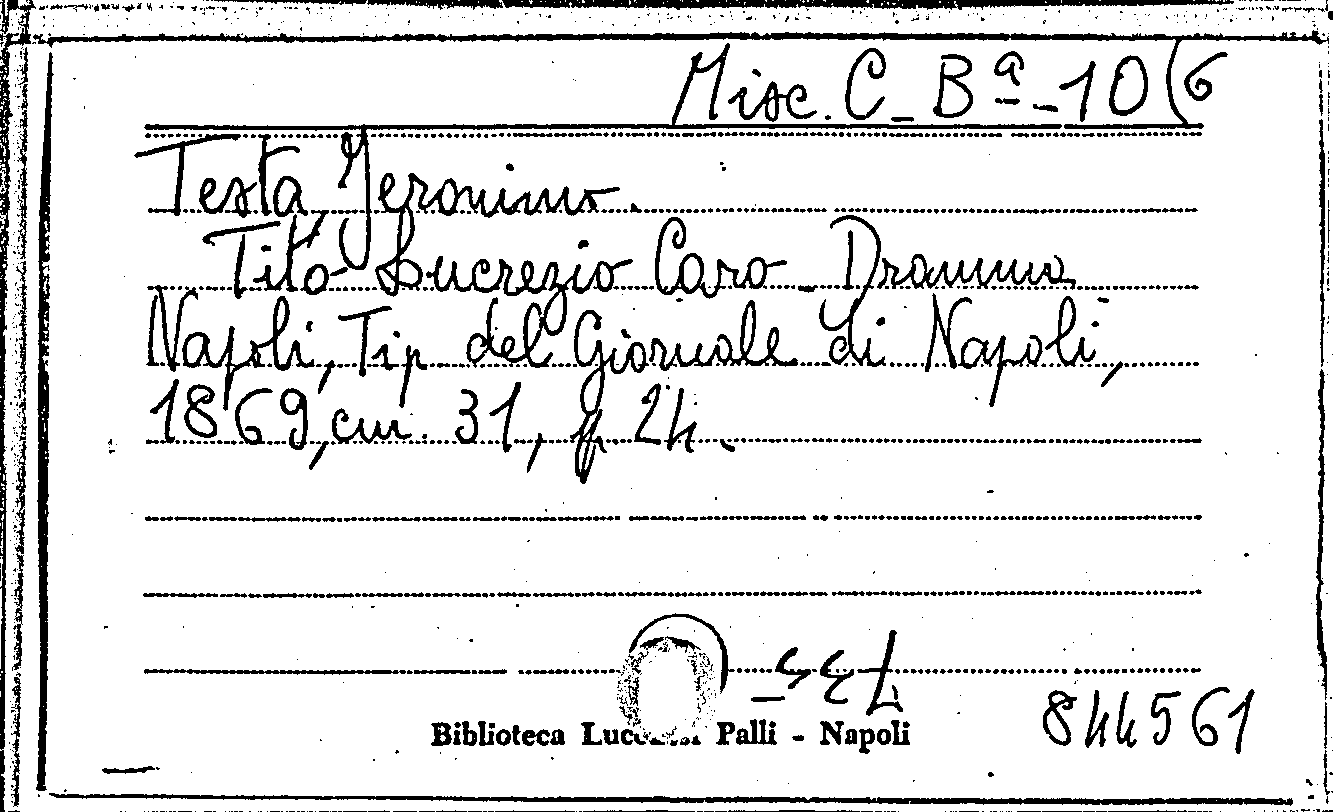 Misc. C - Bª - 10 (6
Testa, Jeronimo.
Tito Lucrezio Caro - Dramma
Napoli, Tip. del Giornale di Napoli,
1869, cm. 31, p. 24.
Biblioteca Palli - Napoli
844561